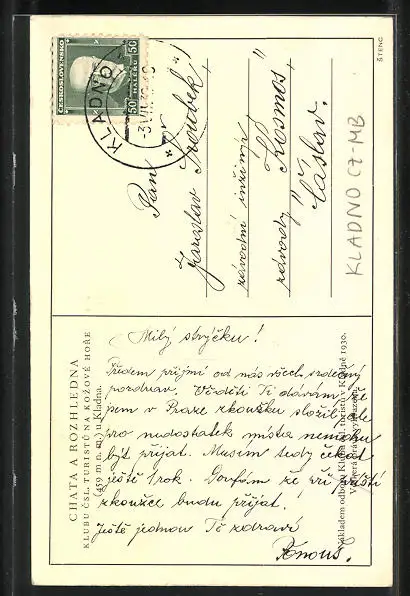 ČESKOSLOVENSKO
50 HALÉŘŮ 50
KLADNO
ŠTENC
Pan
Jaroslav
závodní inženýr
závody "Kosmos"
Čáslav.
KLADNO CZ-MB
CHATA A ROZHLEDNA
KLUBU ČSL. TURISTŮ NA KOŽOVÉ HOŘE
(459 m n. m.) u Kladna.
Milý strýčku!
Předem přijmi od nás všech srdečný
pozdrav. Věděti Ti dávám, že
jsem v Praze zkoušku složil, ale
pro nedostatek místa nemohu
být přijat. Musím tedy čekat
ještě 1 rok. Doufám že při příští
zkoušce budu přijat.
Ještě jednou Tě zdraví
Nákladem odboru Klubu čsl. turistů v Kladně 1930.
Veškerá práva vyhrazena.